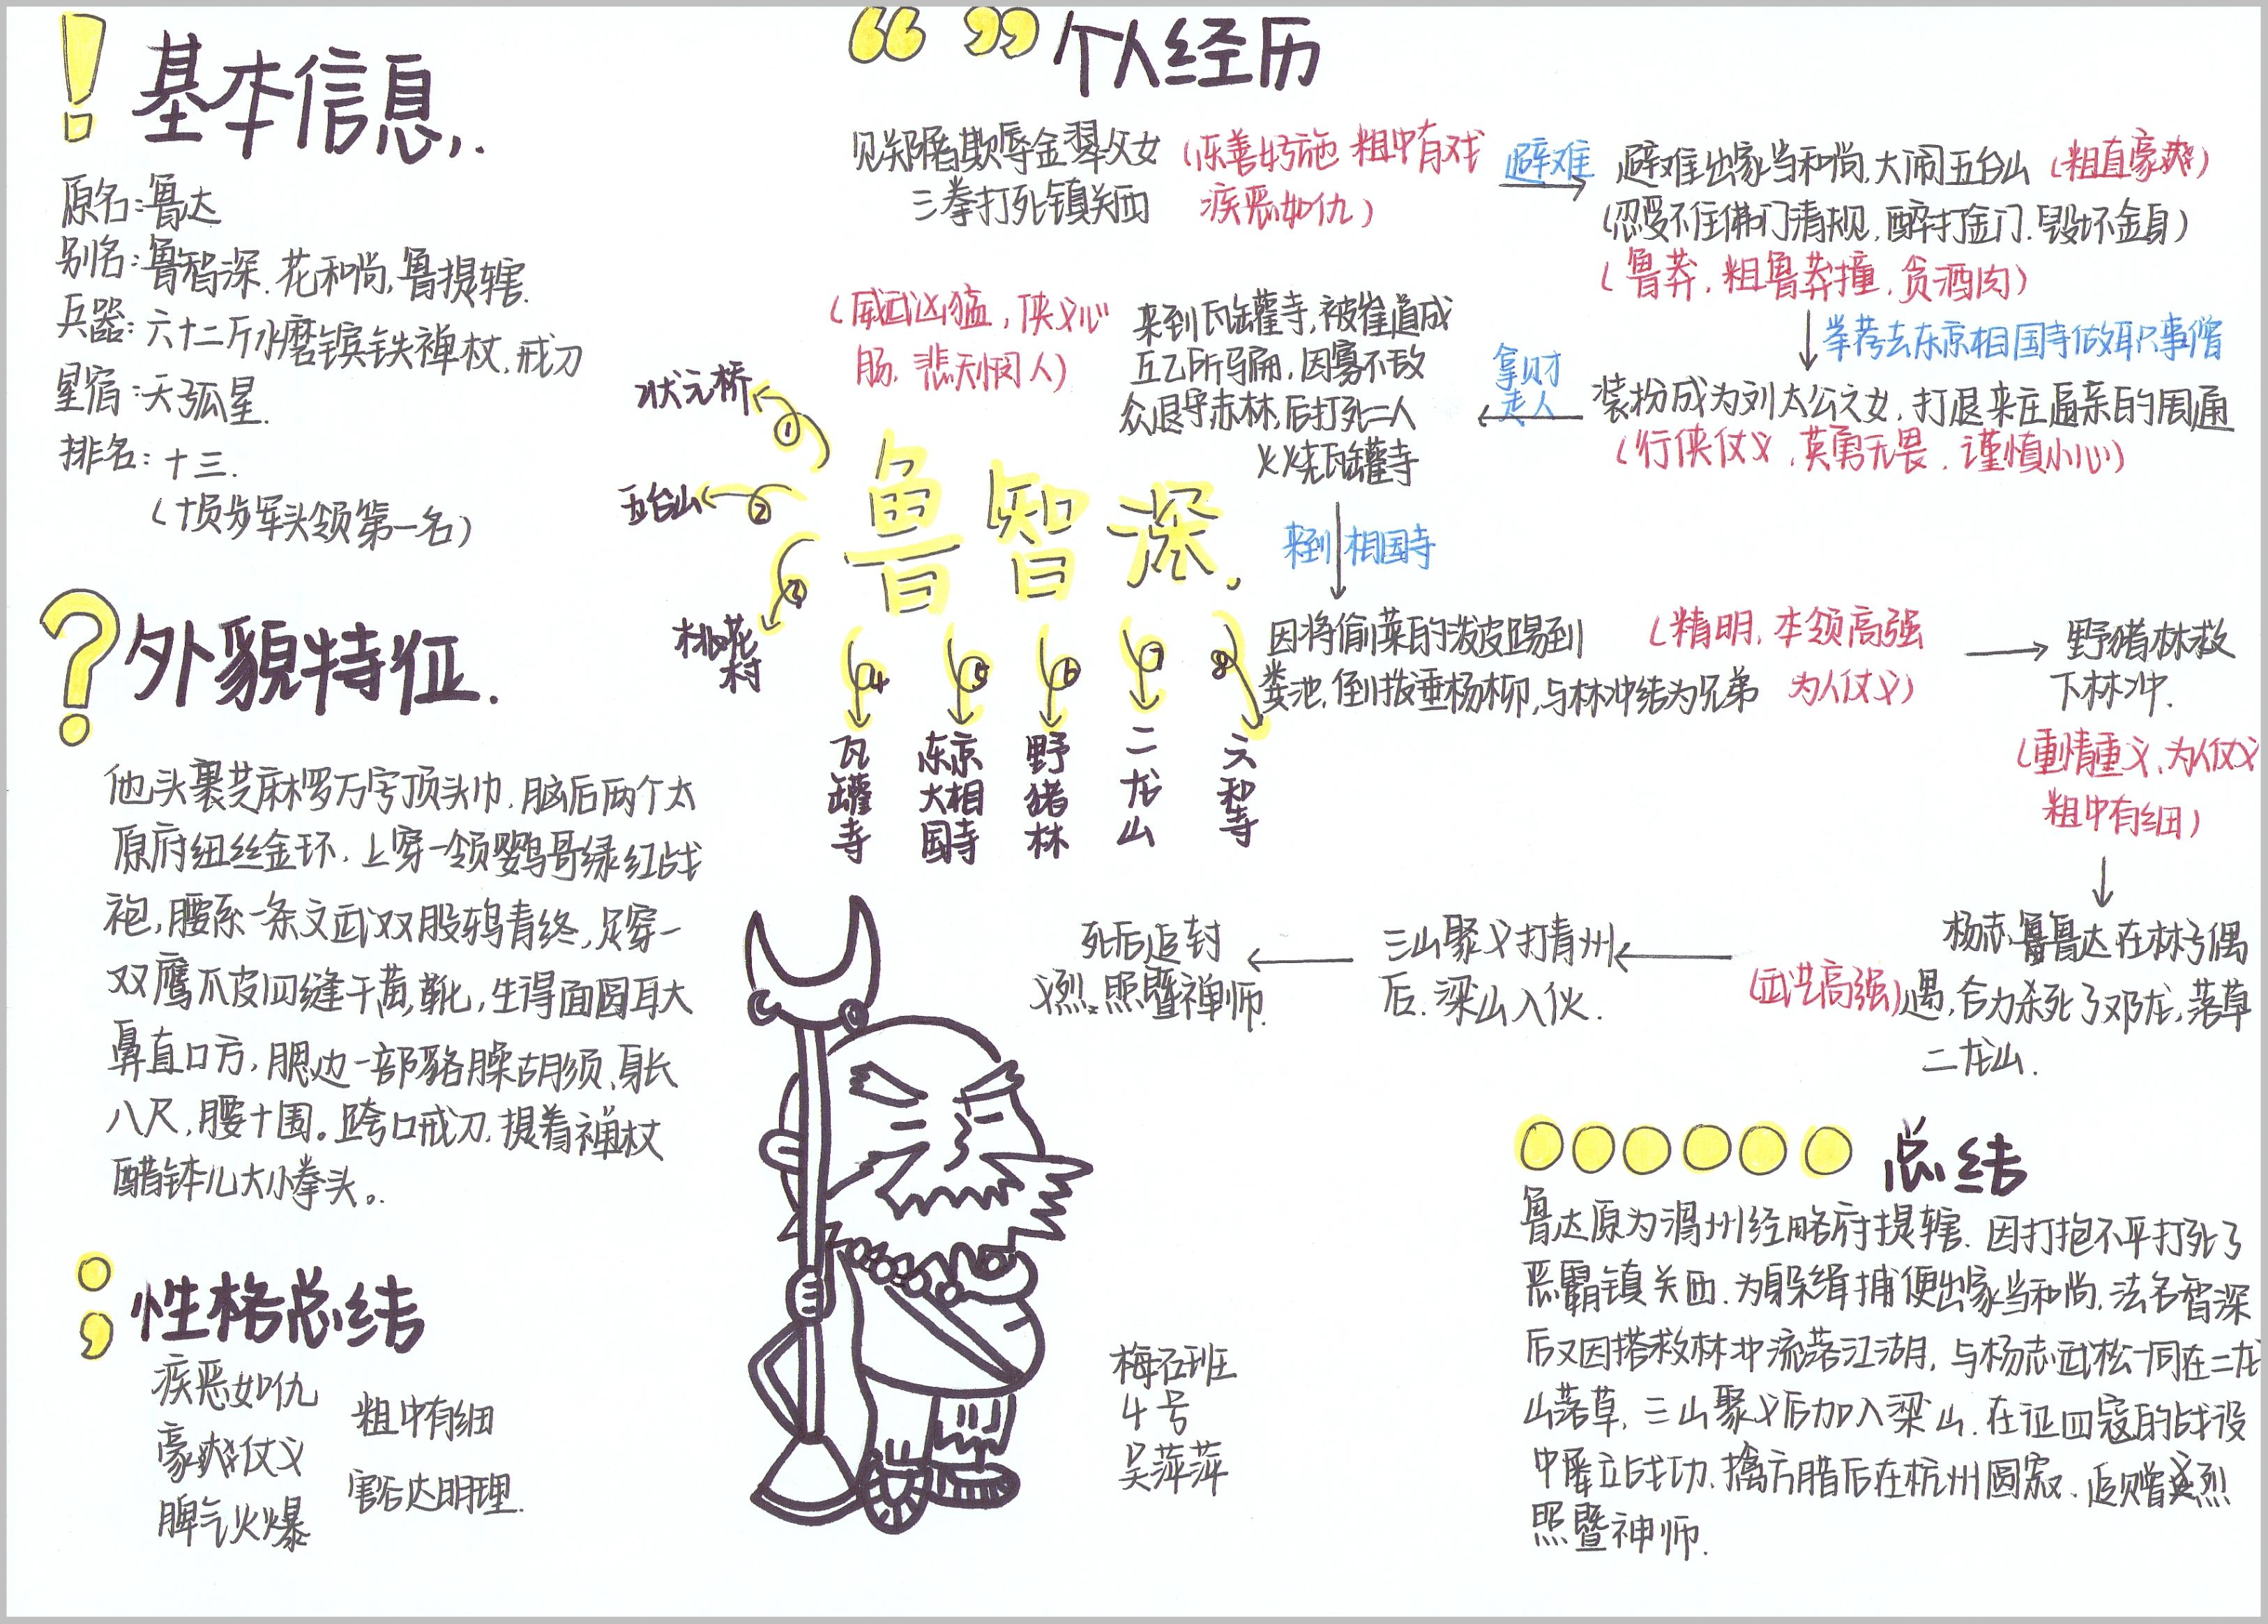 基本信息
原名:鲁达
别名:鲁智深.花和尚,鲁提辖.
兵器:六十二斤水磨镔铁禅杖,戒刀
星宿:天孤星.
排名:十三.
(十员步军头领第一名)
外貌特征.
他头裹芝麻罗万字顶头巾,脑后两个太
原府纽丝金环,上穿一领鹦哥绿红战
袍,腰系一条文武双股鸦青终,足穿一
双鹰爪皮四缝干黄靴,生得面圆耳大
鼻直口方,腮边一部貉臊胡须,身长
八尺,腰十围。跨口戒刀,提着禅杖
醋钵儿大小拳头。
性格总结
疾恶如仇
豪爽仗义
脾气火爆
粗中有细
害后达明理.
鲁智深.
①
状元桥
②
五台山
③
桃花村
4
瓦罐寺
5
东京大相国寺
6
野猪林
7
二龙山
8
六和寺
“ ” 个人经历
见郑屠欺辱金翠父女
三拳打死镇关西
(乐善好施 粗中有戏
疾恶如仇)
避难
避难出家当和尚,大闹五台山 (粗直豪爽)
(忍受不住佛门清规,醉打金门.毁坏金身)
(鲁莽,粗鲁莽撞,贪酒肉)
举荐去东京相国寺做职事僧
装扮成为刘太公之女,打退来庄逼亲的周通
(行侠仗义,英勇无畏.谨慎小心)
拿财
走人
来到瓦罐寺,被崔道成
丘乙所骗,因寡不敌
众退守赤林,后打死二人
火烧瓦罐寺
(威武凶猛,侠义心
肠,悲天悯人)
来到相国寺
因将偷菜的泼皮踢到
粪池,倒拔垂杨柳,与林冲结为兄弟
(精明,本领高强
为人仗义)
野猪林救
下林冲.
(重情重义,为人仗义
粗中有细)
杨志,鲁达在林号偶
遇,合力杀死了邓龙,落草
二龙山.
(武艺高强)
三山聚义打青州
后.梁山入伙.
死后追封
义烈照暨禅师.
梅石班
4号
吴萍萍
总结
鲁达原为渭州经略府提辖.因打抱不平打死了
恶霸镇关西.为躲缉捕便出家当和尚,法名智深
后又因搭救林冲流落江湖,与杨志武松一同在二龙
山落草,三山聚义后加入梁山.在征四寇的战役
中屡立战功.擒方腊后在杭州圆寂.追赠义烈
照暨神师.